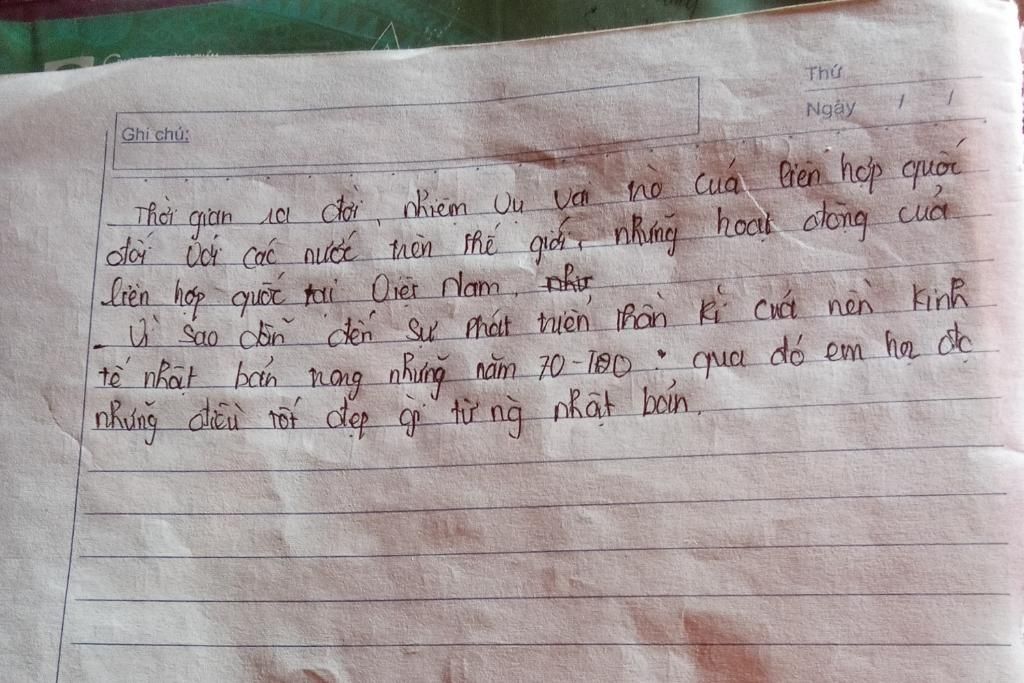 Thứ
Ngày / /
Ghi chú:
Thời gian ra đời, nhiệm vụ vai trò của liên hợp quốc
đối với các nước trên thế giới, những hoạt động của
liên hợp quốc tại Việt Nam.
- Vì sao dẫn đến sự phát triển thần kì của nền kinh
tế nhật bản trong những năm 70-
qua đó em học đc
những điều tốt đẹp gì từ ng nhật bản.